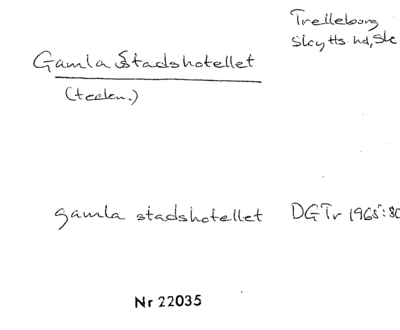 Trelleborg
Skytts hd, Sk
Gamla Stadshotellet
(teckn.)
gamla stadshotellet DGTr 1965:80
Nr 22035